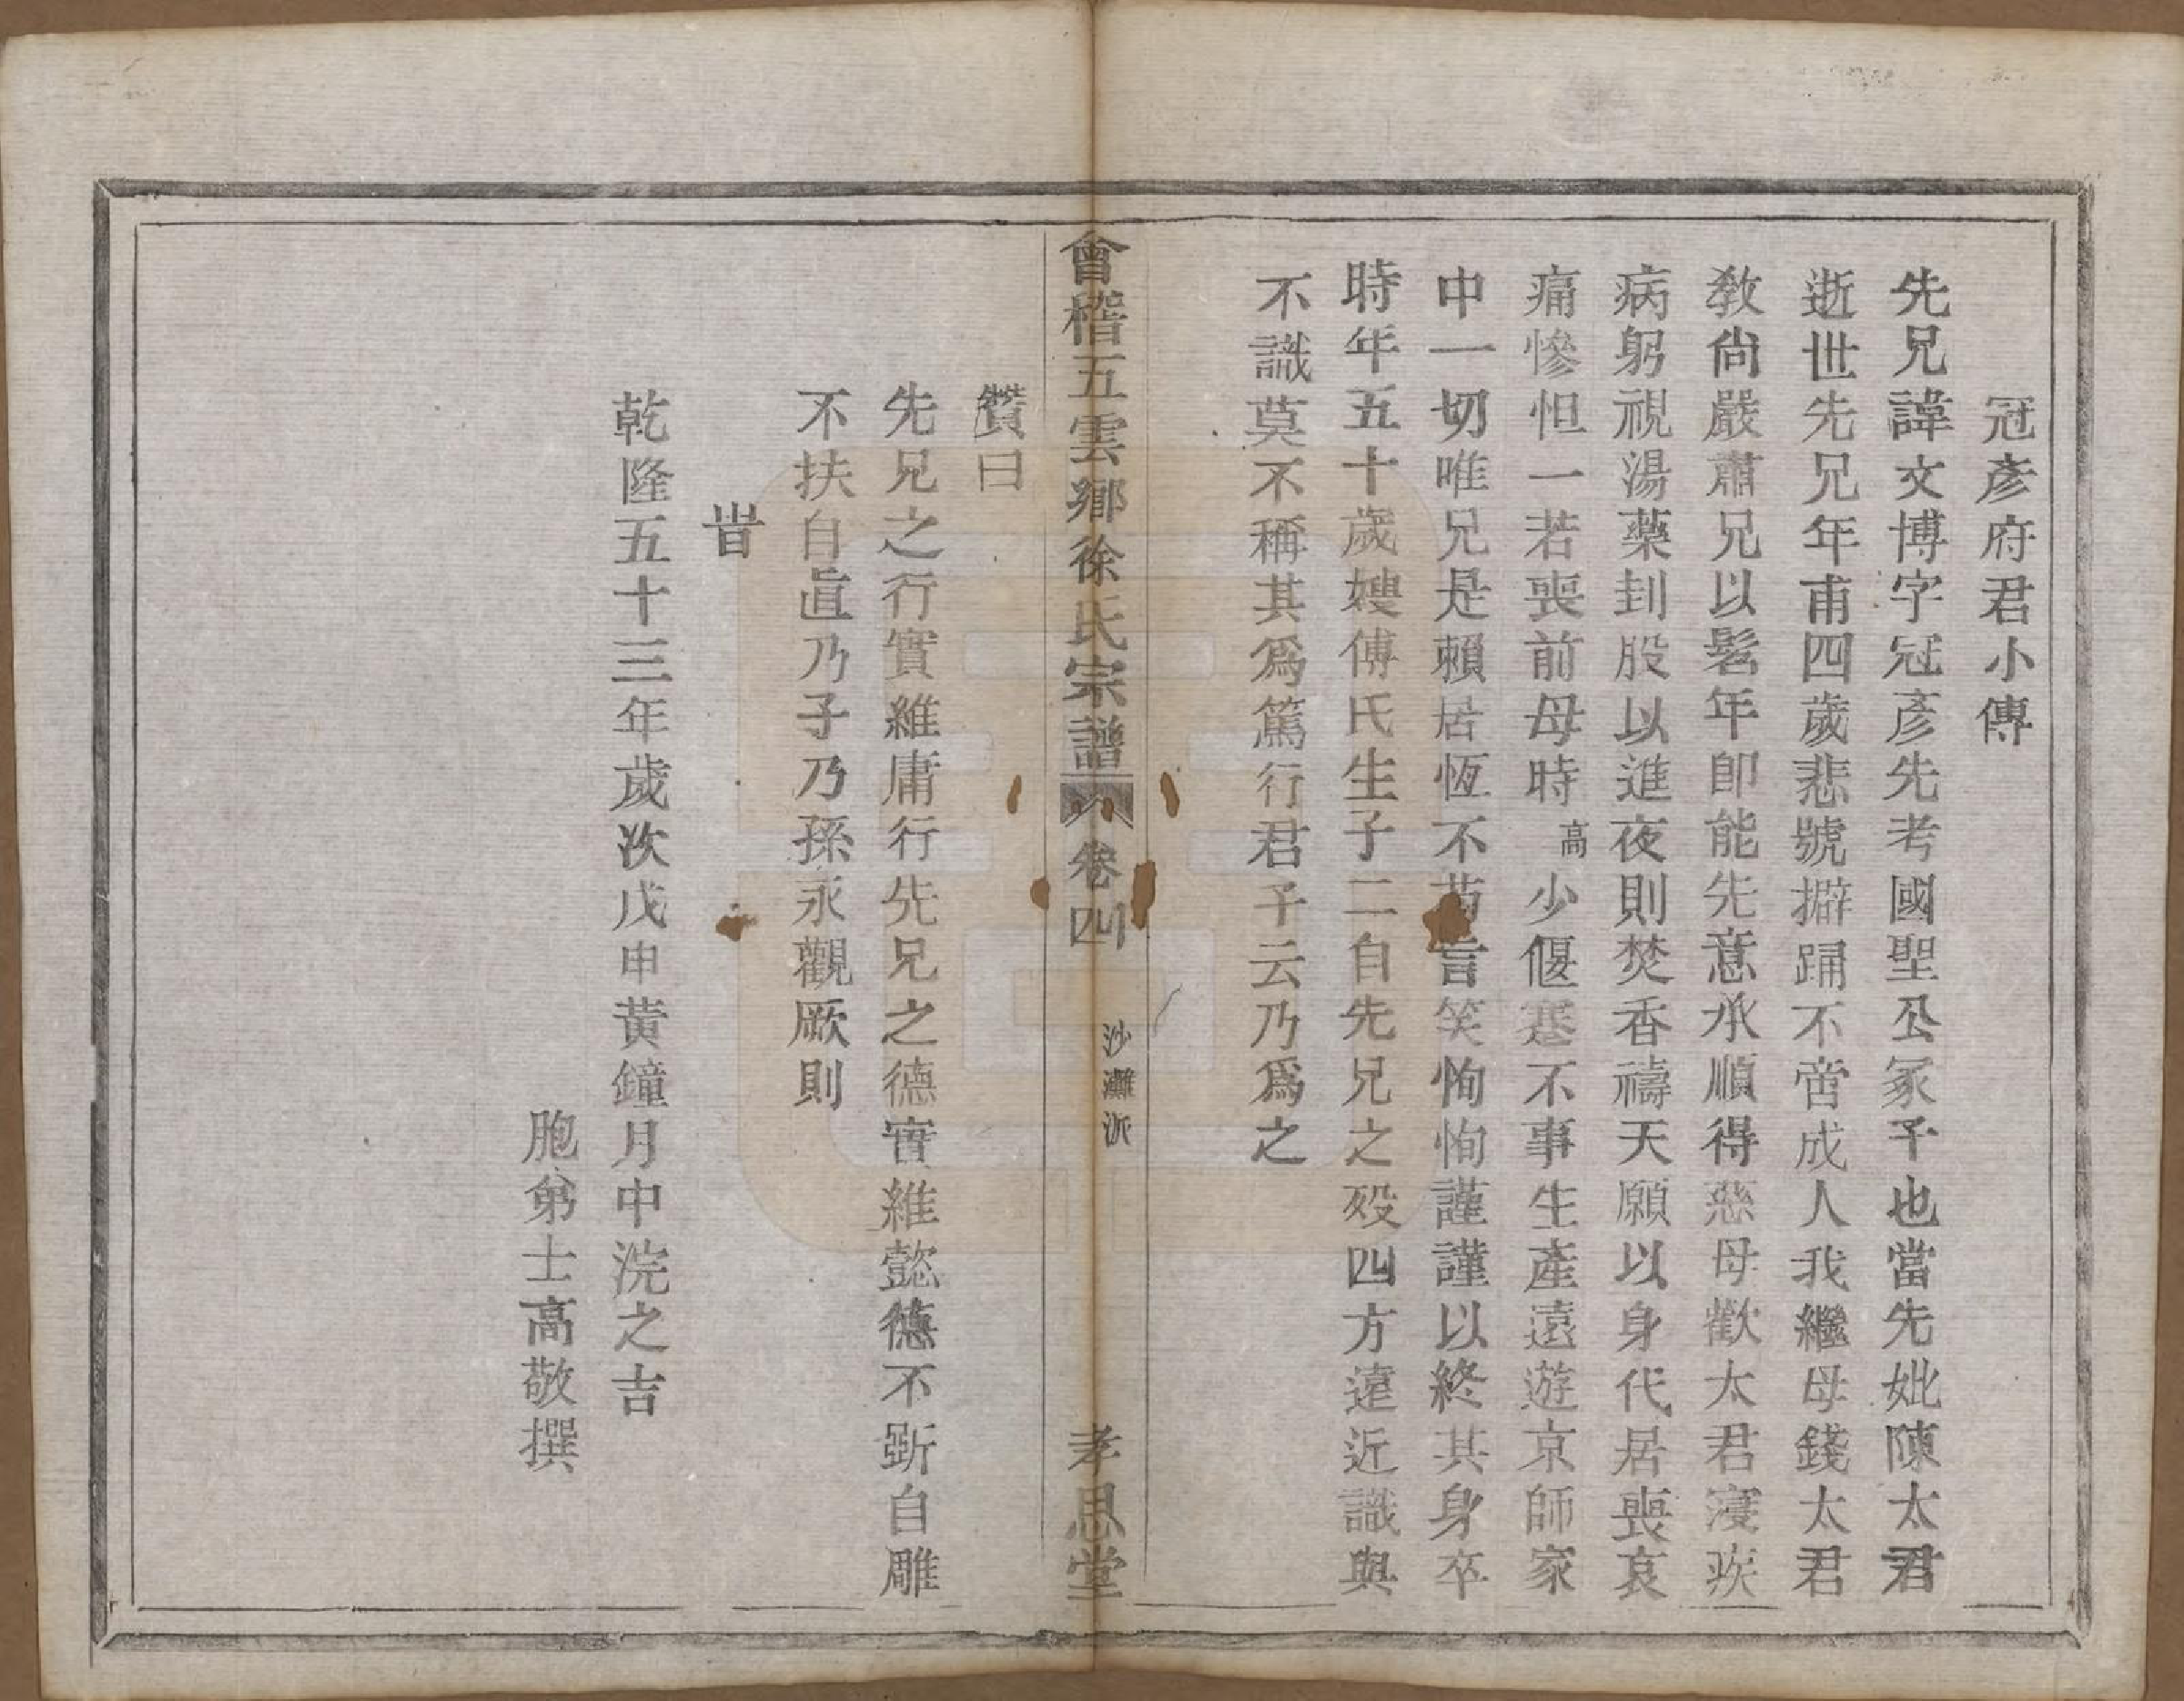 冠彥府君小傳
先兄諱文博字冠彥先考國聖公冢子也當先妣陳太君
逝世先兄年甫四歲悲號擗踴不啻成人我繼母錢太君
敎尙嚴肅兄以髫年卽能先意承順得慈母歡太君寖疾
病躬視湯藥刲股以進夜則焚香禱天願以身代居喪哀
痛慘怛一若喪前母時高少偃蹇不事生產遠遊京師家
中一切唯兄是賴居恆不苟言笑恂恂謹謹以終其身卒
時年五十歲嫂傅氏生子二自先兄之歿四方遠近識與
不識莫不稱其爲篤行君子云乃爲之
會稽五雲鄉徐氏宗譜 卷四 沙灘派 孝思堂
贊曰
先兄之行實維庸行先兄之德實維懿德不斲自雕
不扶自直乃子乃孫永觀厥則
旹
乾隆五十三年歲次戊申黃鐘月中浣之吉
胞弟士高敬撰